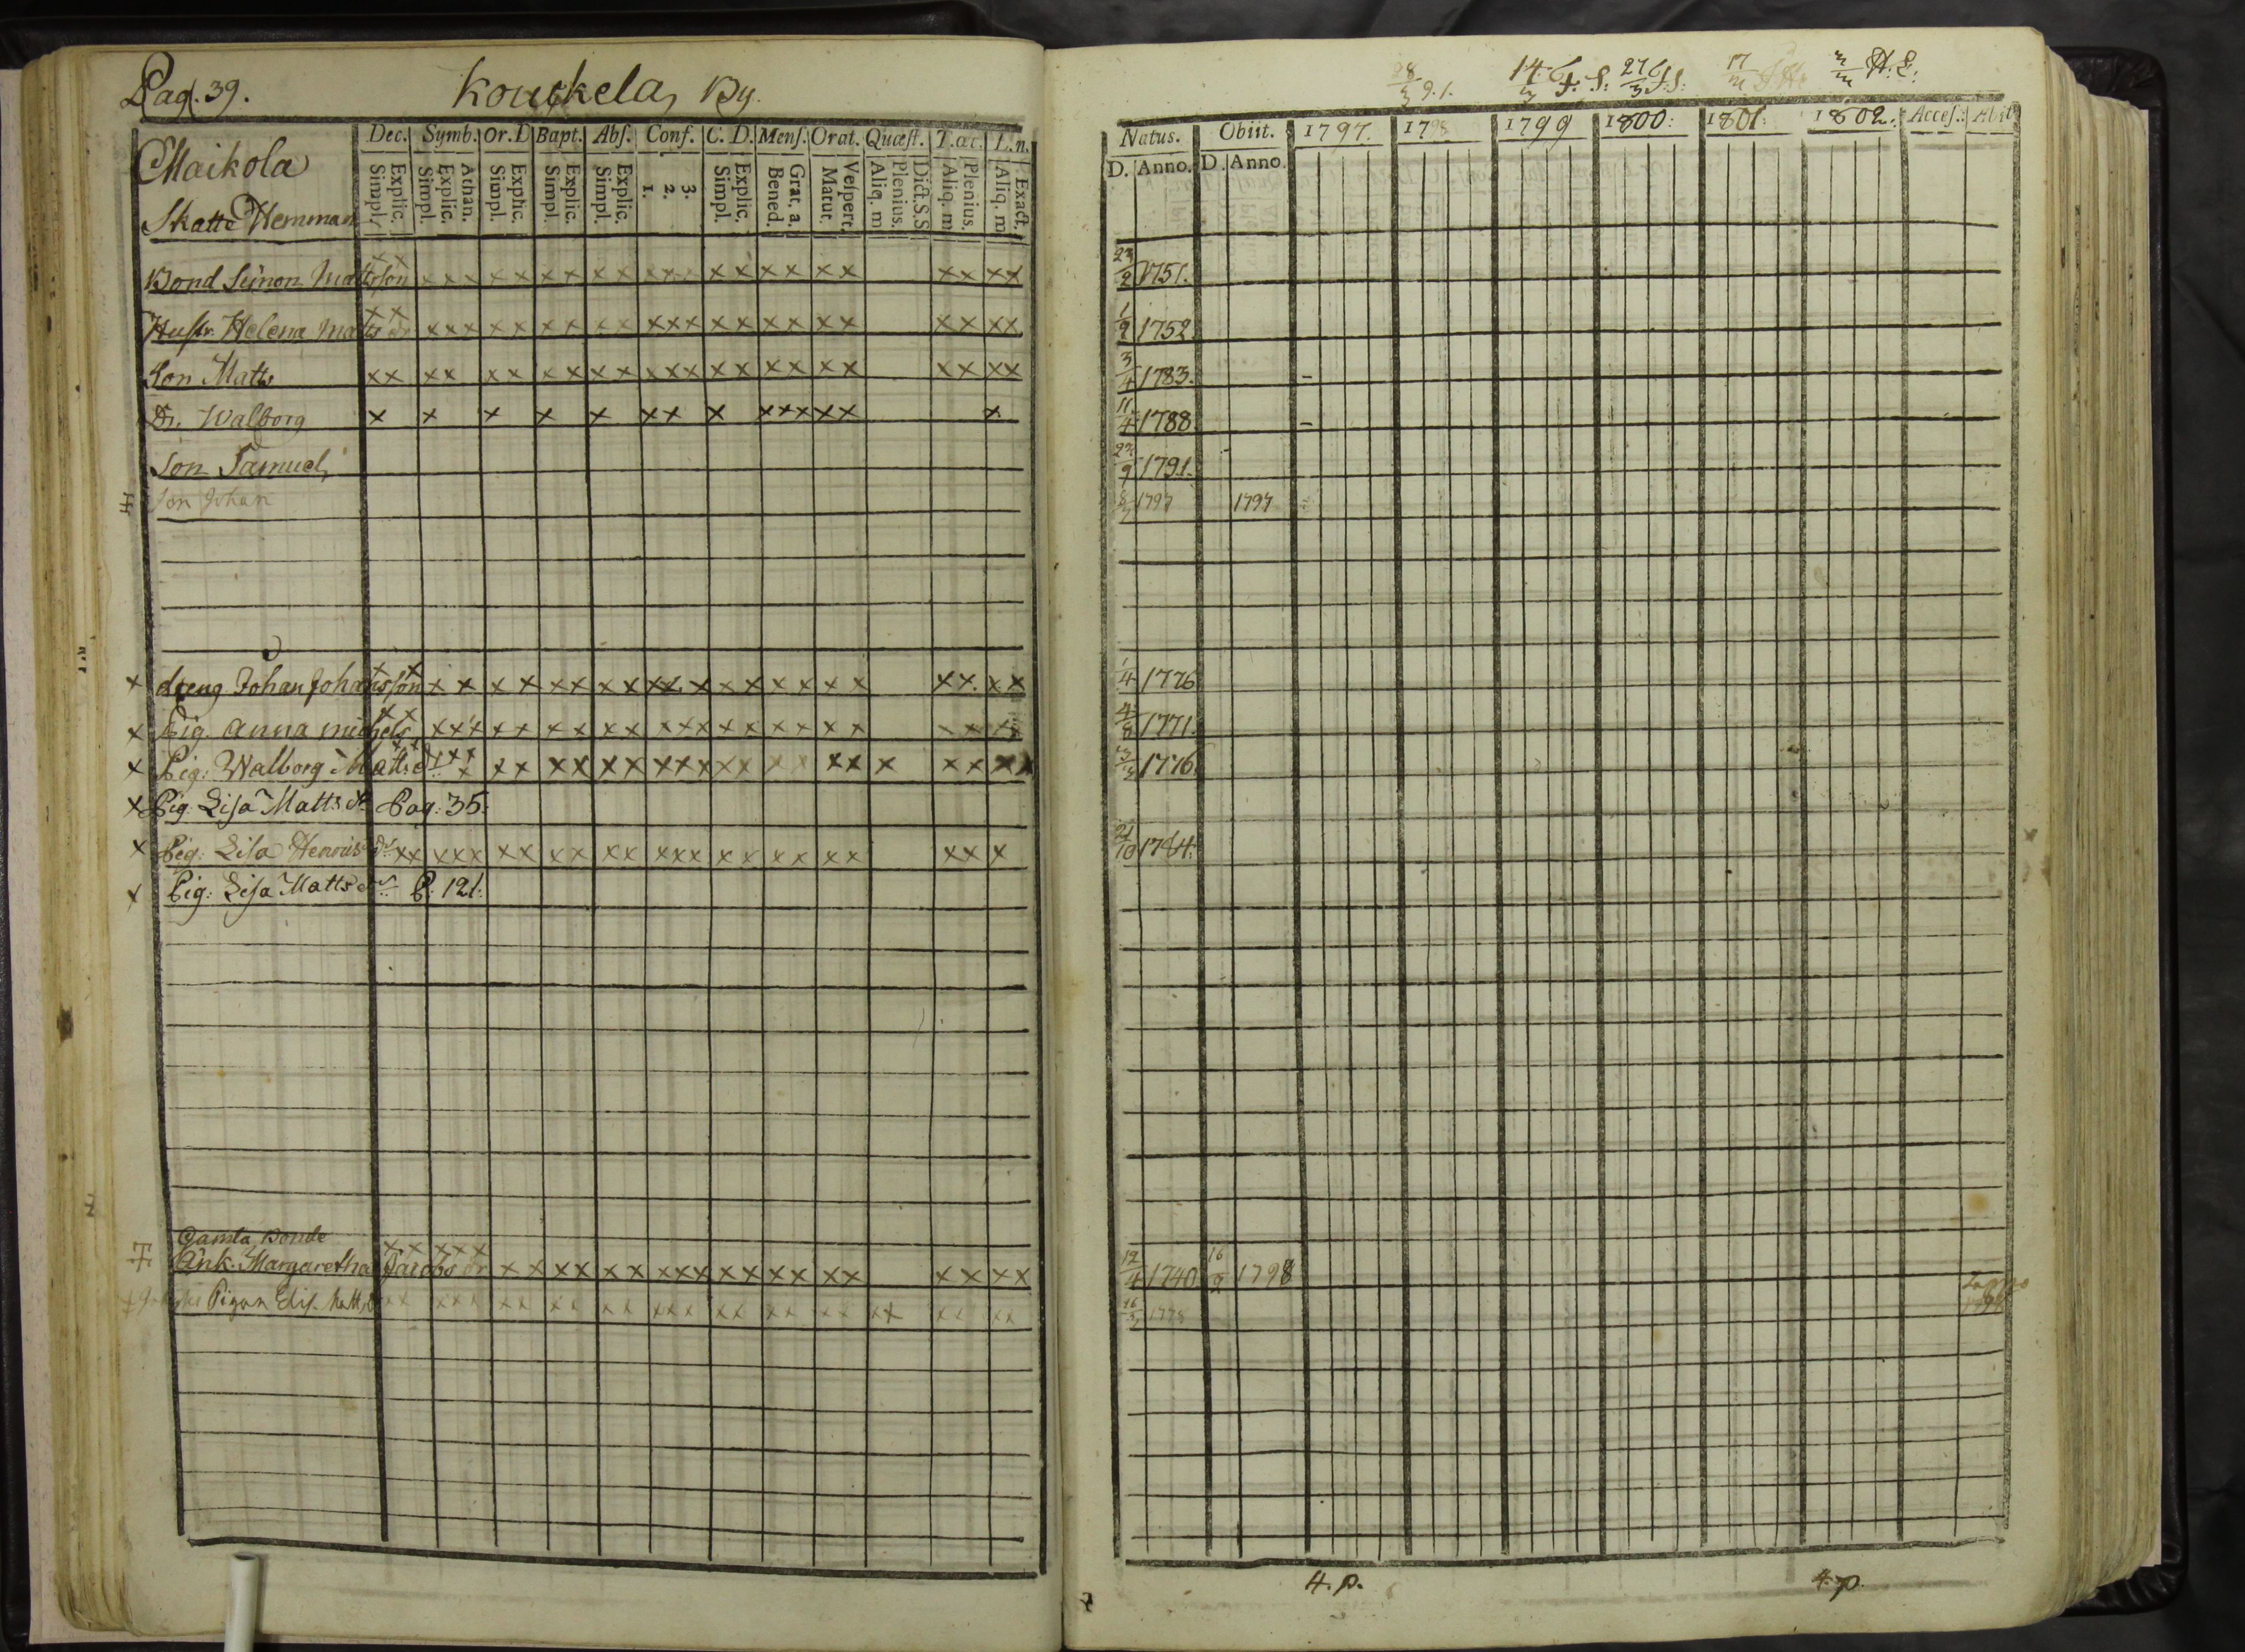 Pag. 39. Kouckela By.
Maikola
Skatte Hemman
Dec. Symb. Or. D Bapt. Abſ. Conf. C. D. Menſ. Orat. Quæſt. T. æc. L. n.
Simpl. Explic. Simpl. Explic. Athan. Simpl. Explic. Simpl. Explic. Simpl. Explic. 1. 2. 3. Simpl. Explic. Bened. Grat. a. Matut. Veſpert. Aliq. m Plenius. Dict. S. S Aliq. m Plenius. Aliq. m Exact.
Bond Simon Mattsson
Hustr. Helena Matts dr
Son Matts
Dr. Walborg
Son Samuel
Son Johan
dreng Johan Johansson
Pig. Anna Michels
Pig: Walborg Matts dr
Pig. Lisa Matts dr Pag: 35:
Pig: Lisa Henrics dr
Pig: Lisa Matts dr P. 121:
Gamla Bonde
Änk. Margaretha Jacobs dr
Pigan Elis. Matts d
28/3 14/3 27/3 J. S: 17 A. E:
Natus. Obiit. 1797. 1798 1799 1800: 1801: 1802: Acceſ. Abiit
D. Anno. D. Anno.
23/2 1751.
1/9 1752
3/4 1783.
11/4 1788
1791.
1797 1797
1/4 1776
4/8 1771.
1776.
21/10 1764:
12/4 1740 16/2 1798
1778
4. p. 4. p.